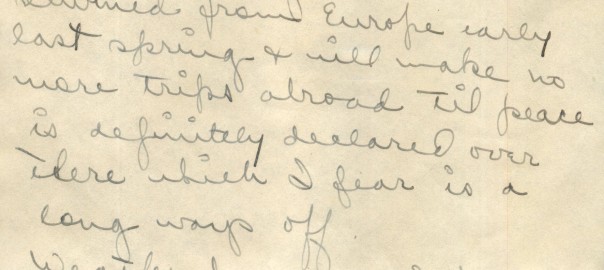 returned from Europe early
last spring & will make no
more trips abroad til peace
is definitely declared over
there which I fear is a
long ways off